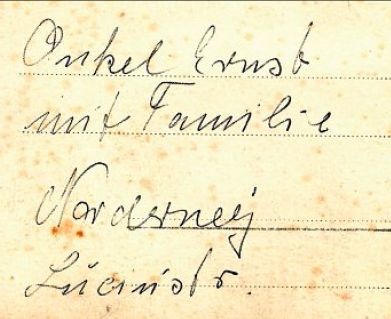 Onkel Ernst
mit Familie
Norderneij
Luciusstr.